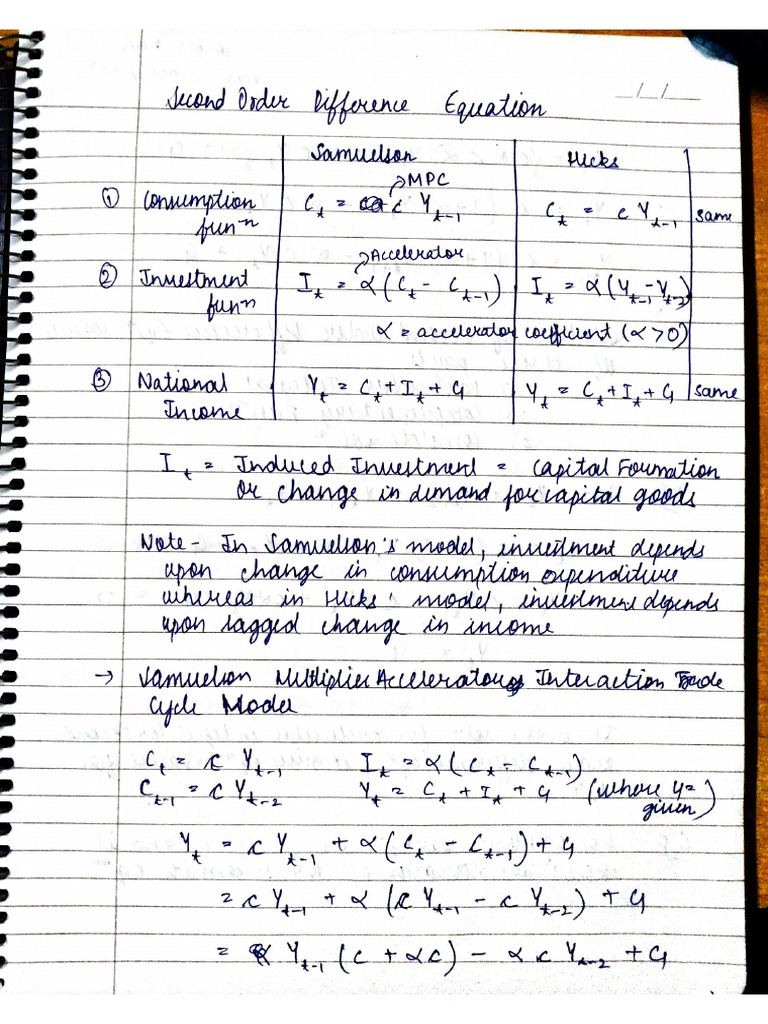 Second Order Difference Equation
__/__/__
Samuelson Hicks
→MPC
① Consumption funⁿ C_t = c Y_{t-1} C_t = c Y_{t-1} same
→Accelerator
② Investment funⁿ I_t = α(C_t - C_{t-1}) I_t = α(Y_{t-1} - Y_{t-2})
α = accelerator coefficient (α>0)
③ National Income Y_t = C_t + I_t + G Y_t = C_t + I_t + G same
I_t = Induced Investment = Capital Formation
or change in demand for capital goods
Note - In Samuelson's model, investment depends
upon change in consumption expenditure
whereas in Hicks' model, investment depends
upon lagged change in income
→ Samuelson Multiplier Accelerator Interaction Trade
Cycle Model
C_t = c Y_{t-1} I_t = α(C_t - C_{t-1})
C_{t-1} = c Y_{t-2} Y_t = C_t + I_t + G (where G = given)
Y_t = c Y_{t-1} + α(C_t - C_{t-1}) + G
= c Y_{t-1} + α (c Y_{t-1} - c Y_{t-2}) + G
= Y_{t-1} (c + αc) - α c Y_{t-2} + G